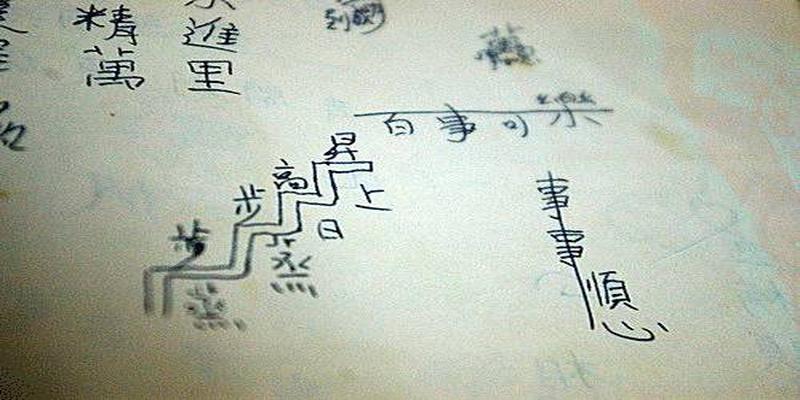 精萬
進里
步步高昇
蒸蒸日上
百事可樂
事事順心